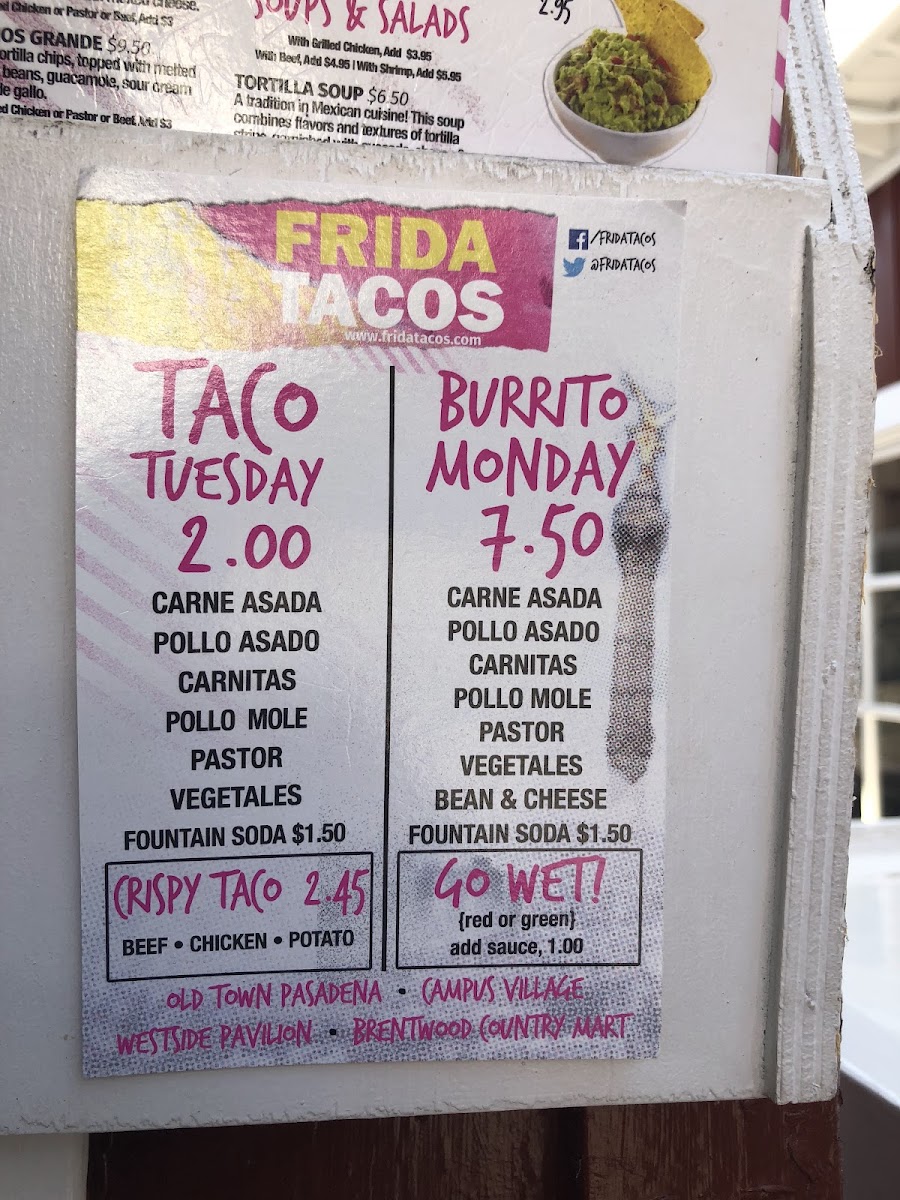 ed Chicken or Pastor or Beef, Add $3
OS GRANDE $9.50
ortilla chips, topped with melted
beans, guacamole, sour cream
de gallo.
ed Chicken or Pastor or Beef, Add $3
SOUPS & SALADS
With Grilled Chicken, Add $3.95
With Beef, Add $4.95 | With Shrimp, Add $5.95
TORTILLA SOUP $6.50
A tradition in Mexican cuisine! This soup
combines flavors and textures of tortilla
2.95
FRIDA
TACOS
www.fridatacos.com
/FRIDATACOS
@FRIDATACOS
TACO
TUESDAY
2.00
CARNE ASADA
POLLO ASADO
CARNITAS
POLLO MOLE
PASTOR
VEGETALES
FOUNTAIN SODA $1.50
CRISPY TACO 2.45
BEEF • CHICKEN • POTATO
BURRITO
MONDAY
7.50
CARNE ASADA
POLLO ASADO
CARNITAS
POLLO MOLE
PASTOR
VEGETALES
BEAN & CHEESE
FOUNTAIN SODA $1.50
GO WET!
{red or green}
add sauce, 1.00
OLD TOWN PASADENA • CAMPUS VILLAGE
WESTSIDE PAVILION • BRENTWOOD COUNTRY MART